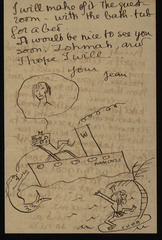 I will make of it the guest
room - with the bath-tub
for a bed
It would be nice to see you
soon. Zohmah, and
I hope I will
your Jean